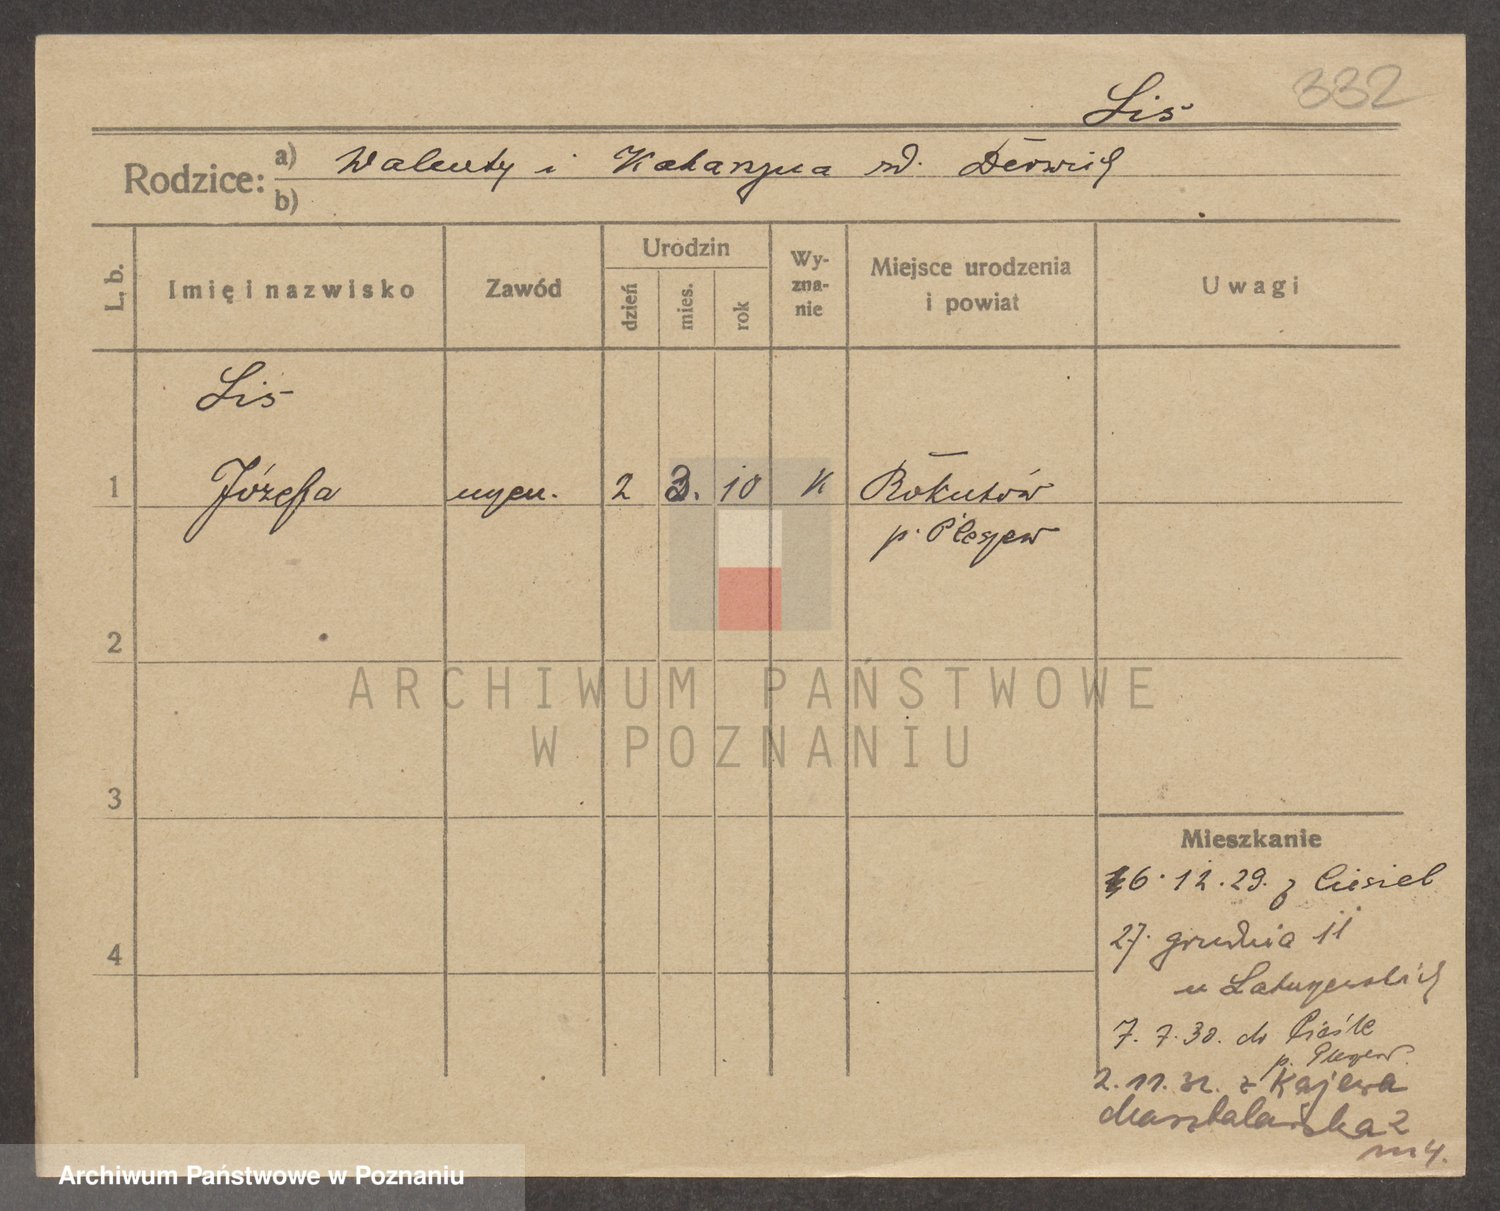 332
Lis
Rodzice: a) Walenty i Katarzyna zd. Derwich
b)
L. b. Imię i nazwisko Zawód Urodzin dzień mies. rok Wyznanie Miejsce urodzenia i powiat Uwagi
Lis
1 Józefa 2 3. 10 K Rokutów
p. Pleszew
2
ARCHIWUM PAŃSTWOWE
W POZNANIU
3
Mieszkanie
16. 12. 29. z
27. grudnia 11
4
u
7. 7. 30. do
p. Pleszew
2. 11. 32. z Kajewa
Masztalarska 2
m 4.
Archiwum Państwowe w Poznaniu